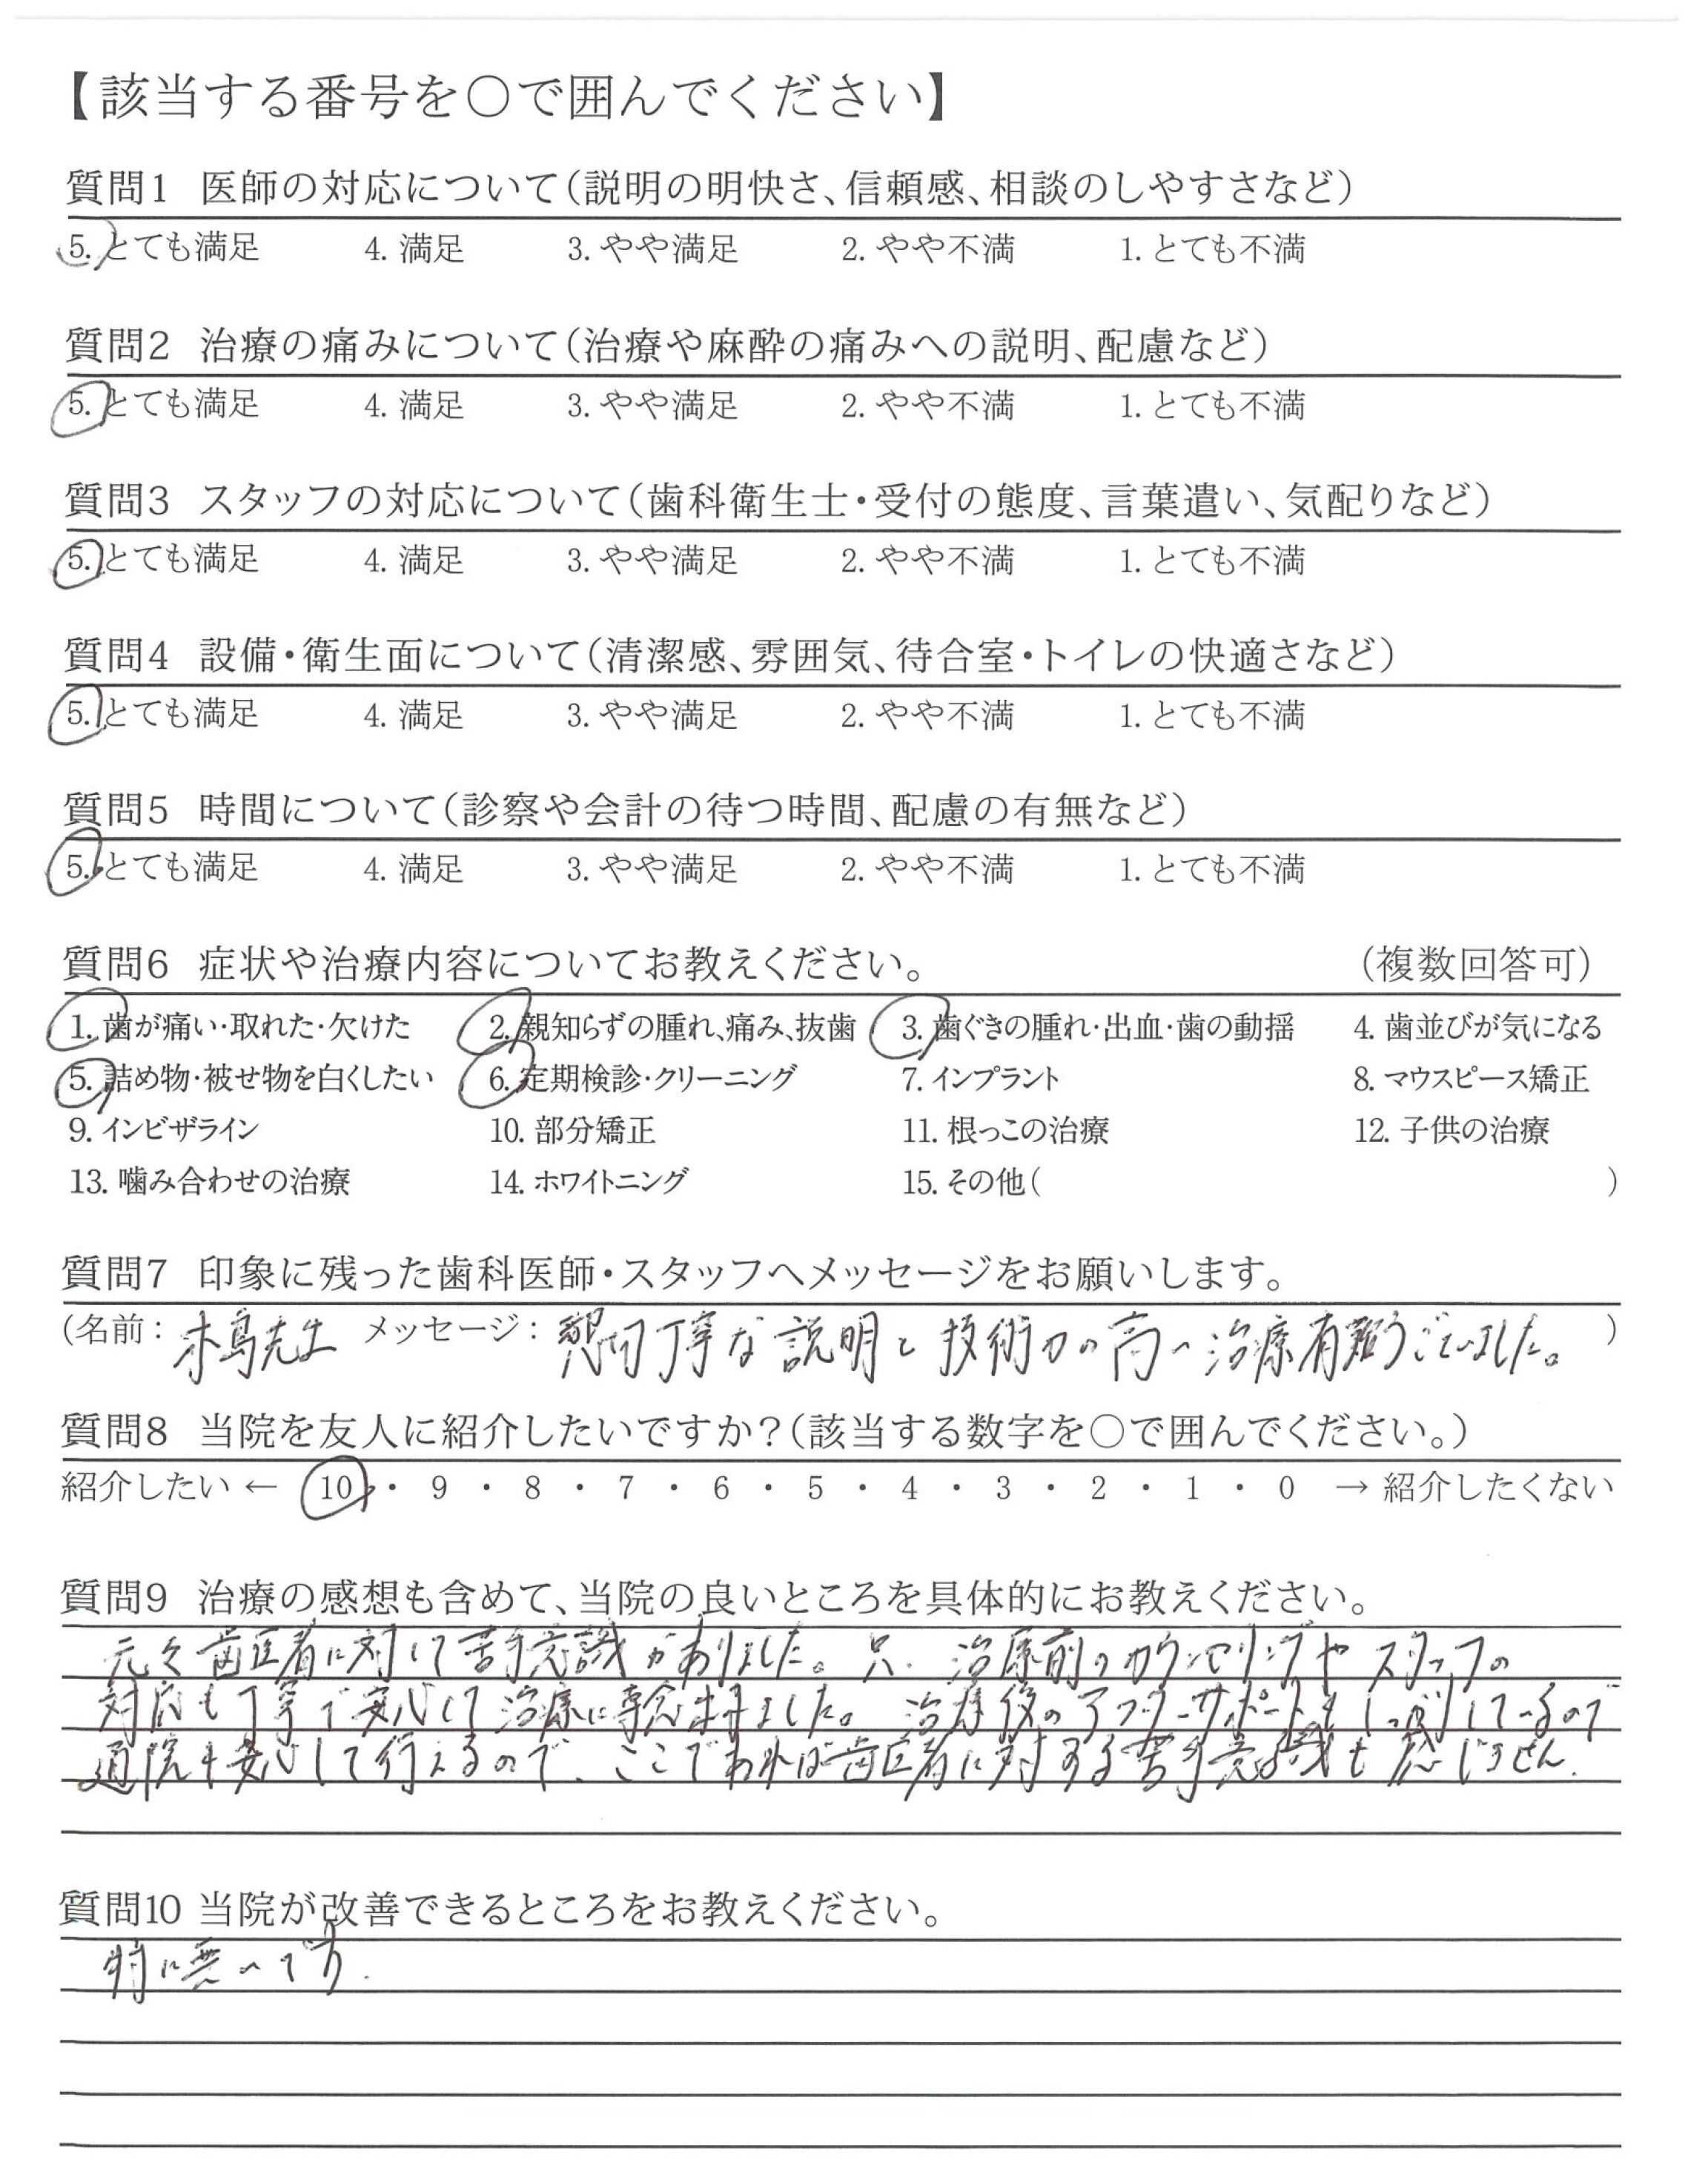 【該当する番号を○で囲んでください】
質問1 医師の対応について(説明の明快さ、信頼感、相談のしやすさなど)
5. とても満足 4. 満足 3. やや満足 2. やや不満 1. とても不満
質問2 治療の痛みについて(治療や麻酔の痛みへの説明、配慮など)
5. とても満足 4. 満足 3. やや満足 2. やや不満 1. とても不満
質問3 スタッフの対応について(歯科衛生士・受付の態度、言葉遣い、気配りなど)
5. とても満足 4. 満足 3. やや満足 2. やや不満 1. とても不満
質問4 設備・衛生面について(清潔感、雰囲気、待合室・トイレの快適さなど)
5. とても満足 4. 満足 3. やや満足 2. やや不満 1. とても不満
質問5 時間について(診察や会計の待つ時間、配慮の有無など)
5. とても満足 4. 満足 3. やや満足 2. やや不満 1. とても不満
質問6 症状や治療内容についてお教えください。 (複数回答可)
1. 歯が痛い・取れた・欠けた 2. 親知らずの腫れ、痛み、抜歯 3. 歯ぐきの腫れ・出血・歯の動揺 4. 歯並びが気になる
5. 詰め物・被せ物を白くしたい 6. 定期検診・クリーニング 7. インプラント 8. マウスピース矯正
9. インビザライン 10. 部分矯正 11. 根っこの治療 12. 子供の治療
13. 噛み合わせの治療 14. ホワイトニング 15. その他( )
質問7 印象に残った歯科医師・スタッフへメッセージをお願いします。
(名前: 木島先生 メッセージ: 懇切丁寧な説明と技術力の高い治療有難うございました。 )
質問8 当院を友人に紹介したいですか?(該当する数字を○で囲んでください。)
紹介したい ← 10 ・ 9 ・ 8 ・ 7 ・ 6 ・ 5 ・ 4 ・ 3 ・ 2 ・ 1 ・ 0 → 紹介したくない
質問9 治療の感想も含めて、当院の良いところを具体的にお教えください。
元々歯医者に対して苦手意識がありました。只、治療前のカウンセリングやスタッフの
対応も丁寧で安心して治療に専念出来ました。治療後のアフターサポートもしっかりしているので
通院も安心して行えるので、ここであれば歯医者に対する苦手意識も感じません。
質問10 当院が改善できるところをお教えください。
特に無いです。